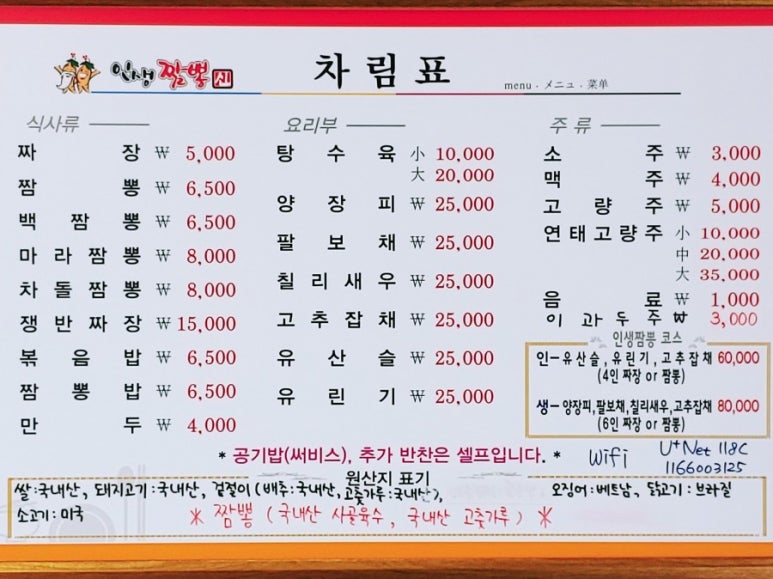 인생 짬뽕 차림표 menu . メニュ . 菜单
식사류
짜장 ₩ 5,000
짬뽕 ₩ 6,500
백짬뽕 ₩ 6,500
마라짬뽕 ₩ 8,000
차돌짬뽕 ₩ 8,000
쟁반짜장 ₩ 15,000
볶음밥 ₩ 6,500
짬뽕밥 ₩ 6,500
만두 ₩ 4,000
요리부
탕수육 小 10,000
大 20,000
양장피 ₩ 25,000
팔보채 ₩ 25,000
칠리새우 ₩ 25,000
고추잡채 ₩ 25,000
유산슬 ₩ 25,000
유린기 ₩ 25,000
주류
소주 ₩ 3,000
맥주 ₩ 4,000
고량주 ₩ 5,000
연태고량주 小 10,000
中 20,000
大 35,000
음료 ₩ 1,000
이과두주 ₩ 3,000
인생짬뽕 코스
인-유산슬, 유린기, 고추잡채 60,000
(4인 짜장 or 짬뽕)
생-양장피,팔보채,칠리새우,고추잡채 80,000
(6인 짜장 or 짬뽕)
* 공기밥(써비스), 추가 반찬은 셀프입니다. *
Wifi U+Net 118C
1166003125
원산지 표기
쌀:국내산, 돼지고기:국내산, 겉절이(배추:국내산,고춧가루:국내산), 오징어:베트남, 닭고기:브라질
소고기:미국
* 짬뽕 (국내산 사골육수, 국내산 고춧가루) *